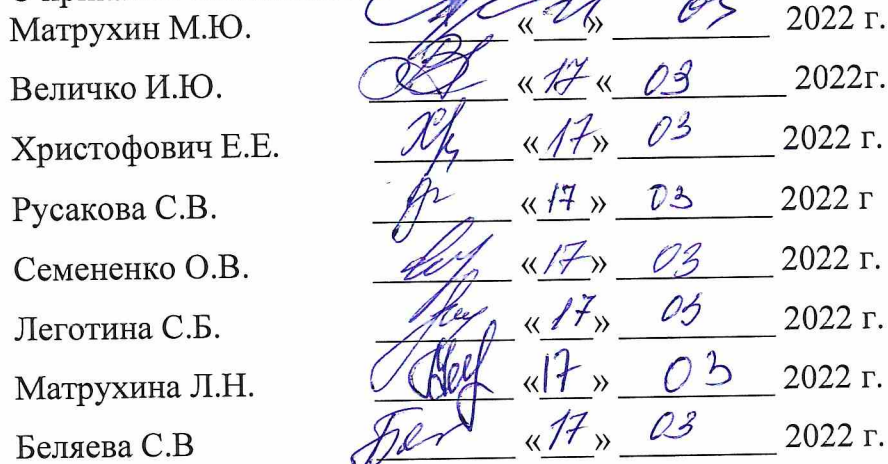 Матрухин М.Ю. «___» 03 2022 г.
Величко И.Ю. «17 « 03 2022г.
Христофович Е.Е. «17» 03 2022 г.
Русакова С.В. «17» 03 2022 г
Семененко О.В. «17» 03 2022 г.
Леготина С.Б. «17» 03 2022 г.
Матрухина Л.Н. «17» 03 2022 г.
Беляева С.В «17» 03 2022 г.